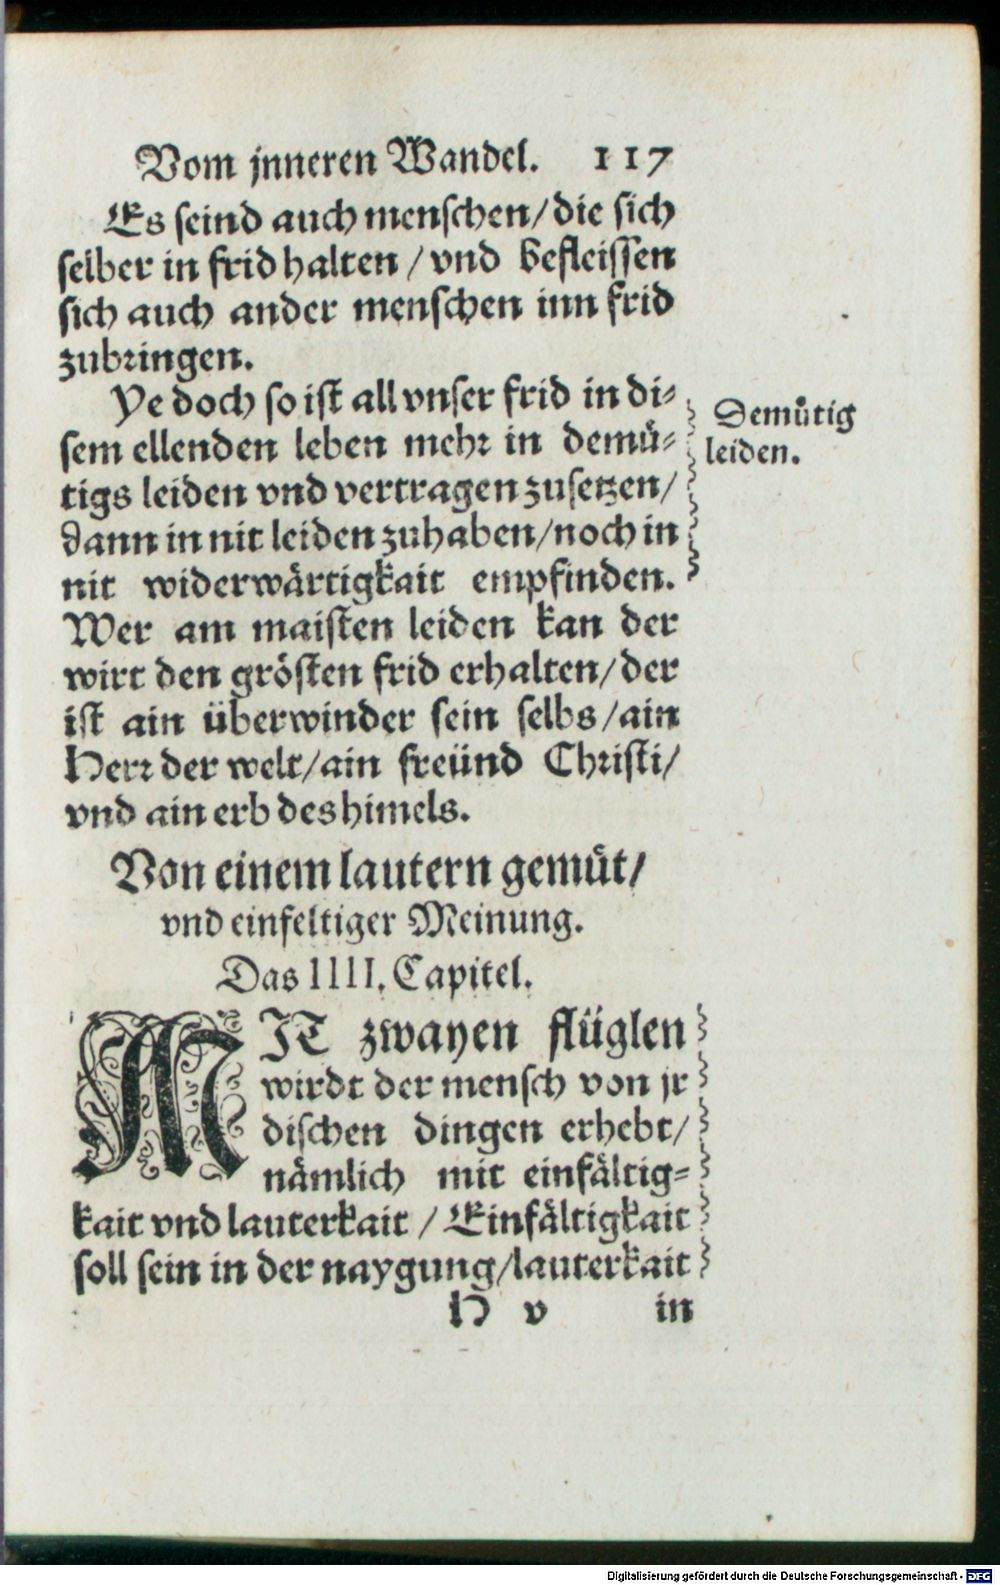 Vom jnneren Wandel. 117
Es seind auch menschen/die sich
selber in frid halten /vnd befleissen
sich auch ander menschen inn frid
zubringen.
Ye doch so ist all vnser frid in di⸗
sem ellenden leben mehr in demü⸗
tigs leiden vnd vertragen zusetzen/
dann in nit leiden zuhaben/noch in
nit widerwärtigkait empfinden.
Wer am maisten leiden kan der
wirt den grösten frid erhalten/der
ist ain überwinder sein selbs/ain
Herr der welt/ain freünd Christi/
vnd ain erb des himels.
Demütig
leiden.
Von einem lautern gemüt/
vnd einfeltiger Meinung.
Das IIII. Capitel.
MIT zwayen flüglen
wirdt der mensch von jr
dischen dingen erhebt/
nämlich mit einfältig⸗
kait vnd lauterkait / Einfältigkait
soll sein in der naygung/lauterkait
H v in
Digitalisierung gefördert durch die Deutsche Forschungsgemeinschaft - DFG